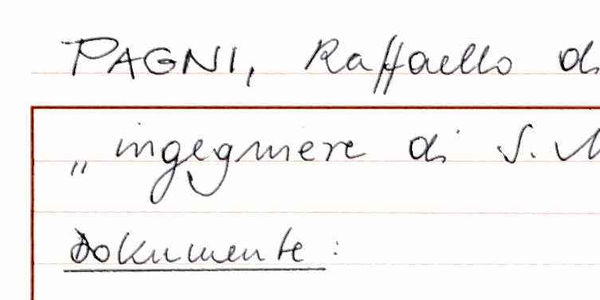 PAGNI, Raffaello di
„ingegniere di S. M
Dokumente: